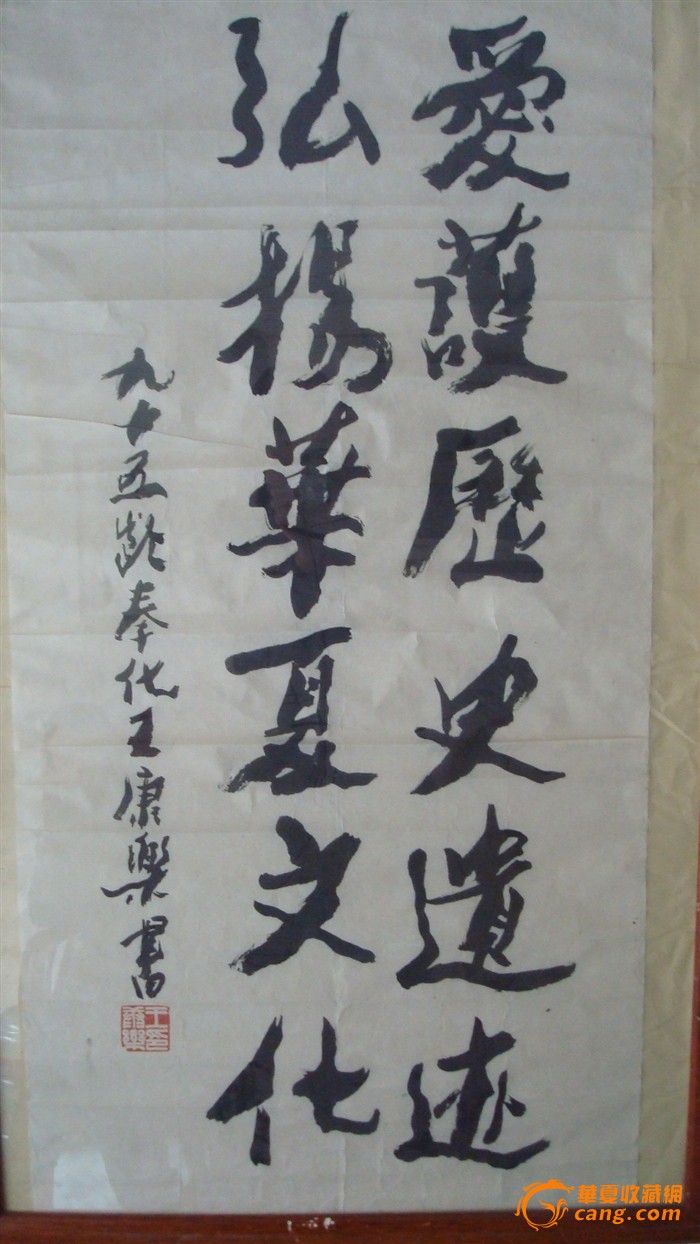 愛護歷史遺迹
弘揚華夏文化
九十五龄奉化王康樂書
王康樂印
華夏收藏網
cang.com